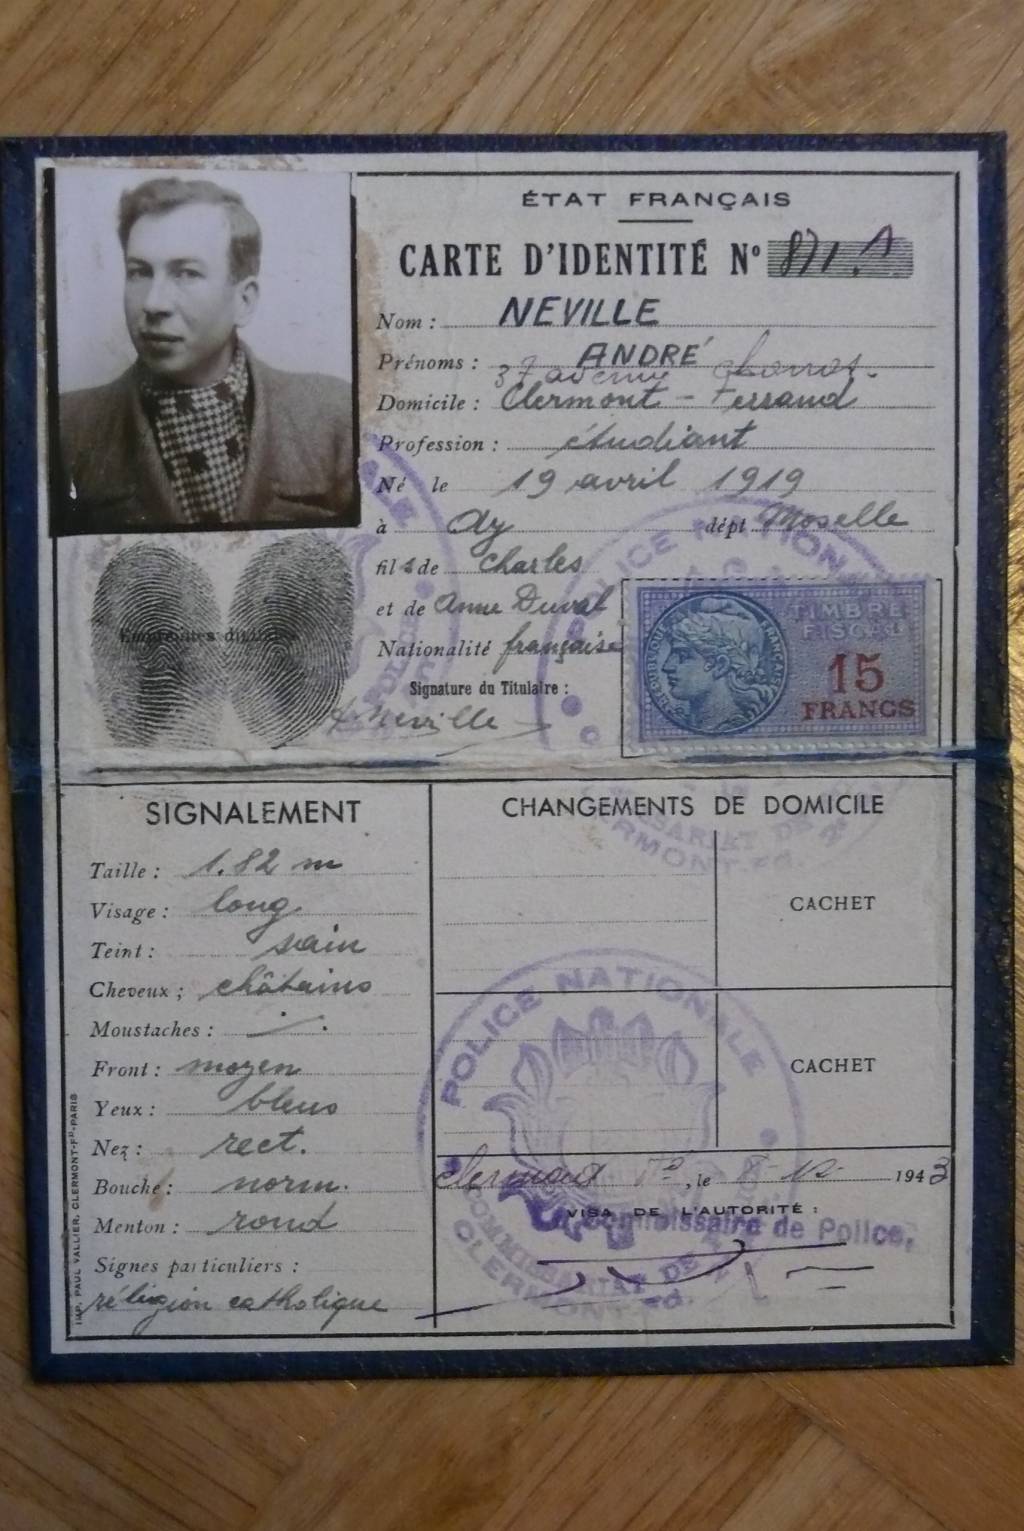 ÉTAT FRANÇAIS
CARTE D'IDENTITÉ Nº 871.A
Nom : NEVILLE
Prénoms : ANDRÉ
37 avenue
Domicile : Clermont - Ferrand
Profession : étudiant
Né le 19 avril 1919
à Ay dépt Moselle
fils de Charles
et de Anne Duval
Nationalité française
Signature du Titulaire :
A Neville
Empreintes digitales
TIMBRE
FISCAL
15
FRANCS
REPUBLIQUE FRANÇAISE
POLICE NATIONALE
SIGNALEMENT
Taille : 1.82 m
Visage : long
Teint : sain
Cheveux ; châtains
Moustaches :
Front : moyen
Yeux : bleus
Nez : rect.
Bouche : norm.
Menton : rond
Signes particuliers :
réligion catholique
IMP. PAUL VALLIER, CLERMONT-Fᴰ-PARIS
CHANGEMENTS DE DOMICILE
CACHET
CACHET
POLICE NATIONALE
COMMISSARIAT DE
CLERMONT-Fd.
Clermont Fd, le 8-12- 1943
VISA DE L'AUTORITÉ :
Le Commissaire de Police,